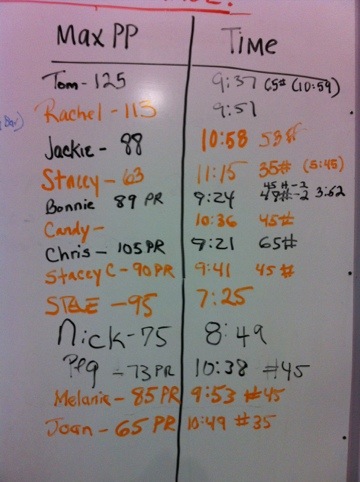 Max PP Time
Tom - 125 9:37 65# (10:59)
Rachel - 115 9:51
Jackie - 88 10:58 53#
Stacey - 63 11:15 35# (5:45)
Bonnie 89 PR 9:24 45#-2 48#-2 3:52
Candy - 10:36 45#
Chris - 105 PR 9:21 65#
Stacey C - 90 PR 9:41 45#
STEVE - 95 7:25
Nick - 75 8:49
Peg - 73 PR 10:38 #45
Melanie - 85 PR 9:53 #45
Joan - 65 PR 10:49 #35